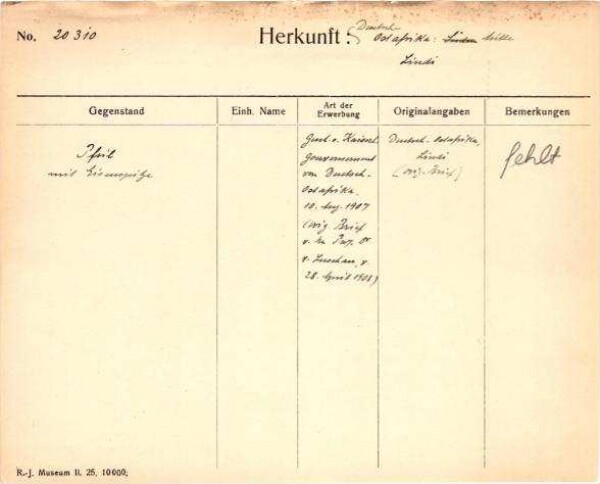 No. 20310
Herkunft: Deutsch-
Ostafrika: Süden
Lindi
Gegenstand
Einh. Name
Art der
Erwerbung
Originalangaben
Bemerkungen
Pfeil
mit Eisenspitze
Gesch. v. Kaiserl.
Gouvernement
von Deutsch-
Ostafrika
10. Aug. 1907
(orig. Brief
v. Prof. Dr
v. Luschan, v.
28. April 1908)
Deutsch-Ostafrika,
Lindi
(orig. Brief)
fehlt
R.-J. Museum II. 25. 10000.